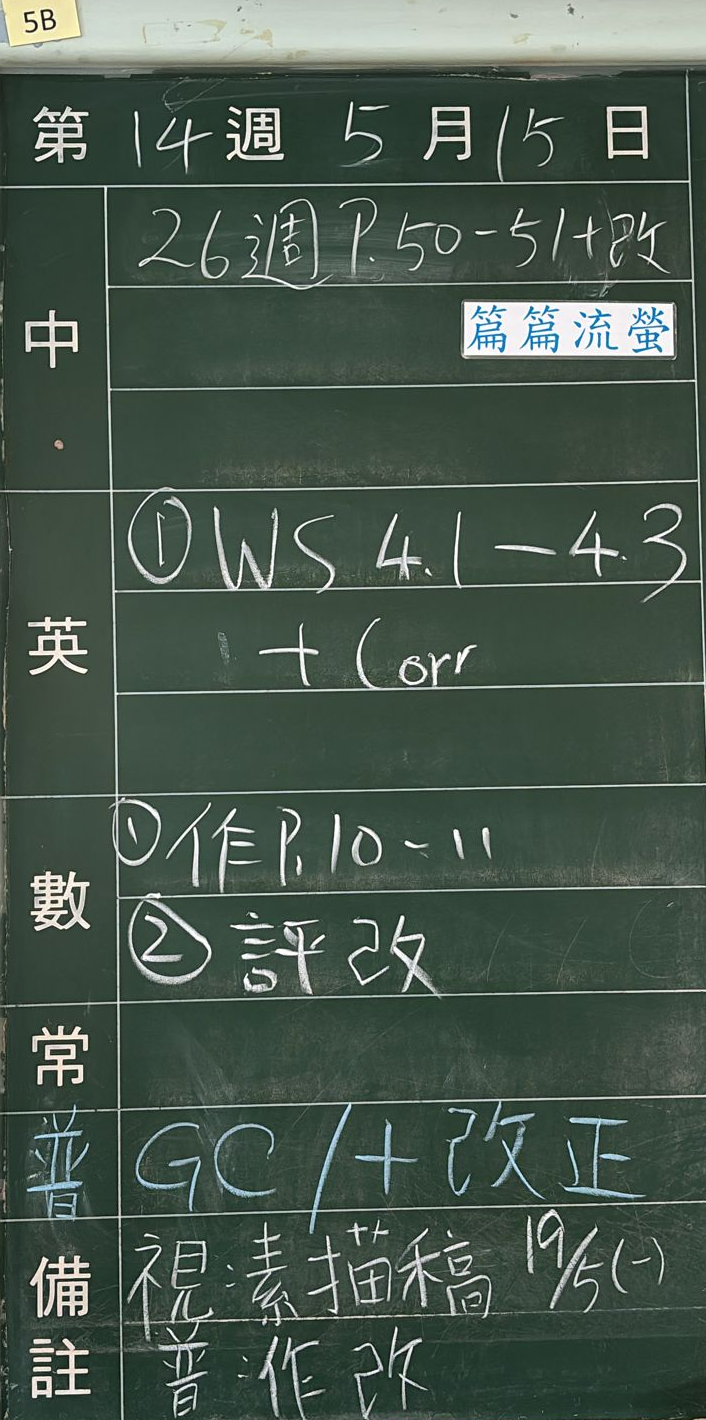 5B
第 14 週 5 月 15 日
中
26週 P.50-51+改
篇篇流螢
英
① WS 4.1-4.3
+ Corr
數
① 作 P.10-11
② 評改
常
普 GC /+改正
備註
視:素描稿 19/5(一)
普:作改